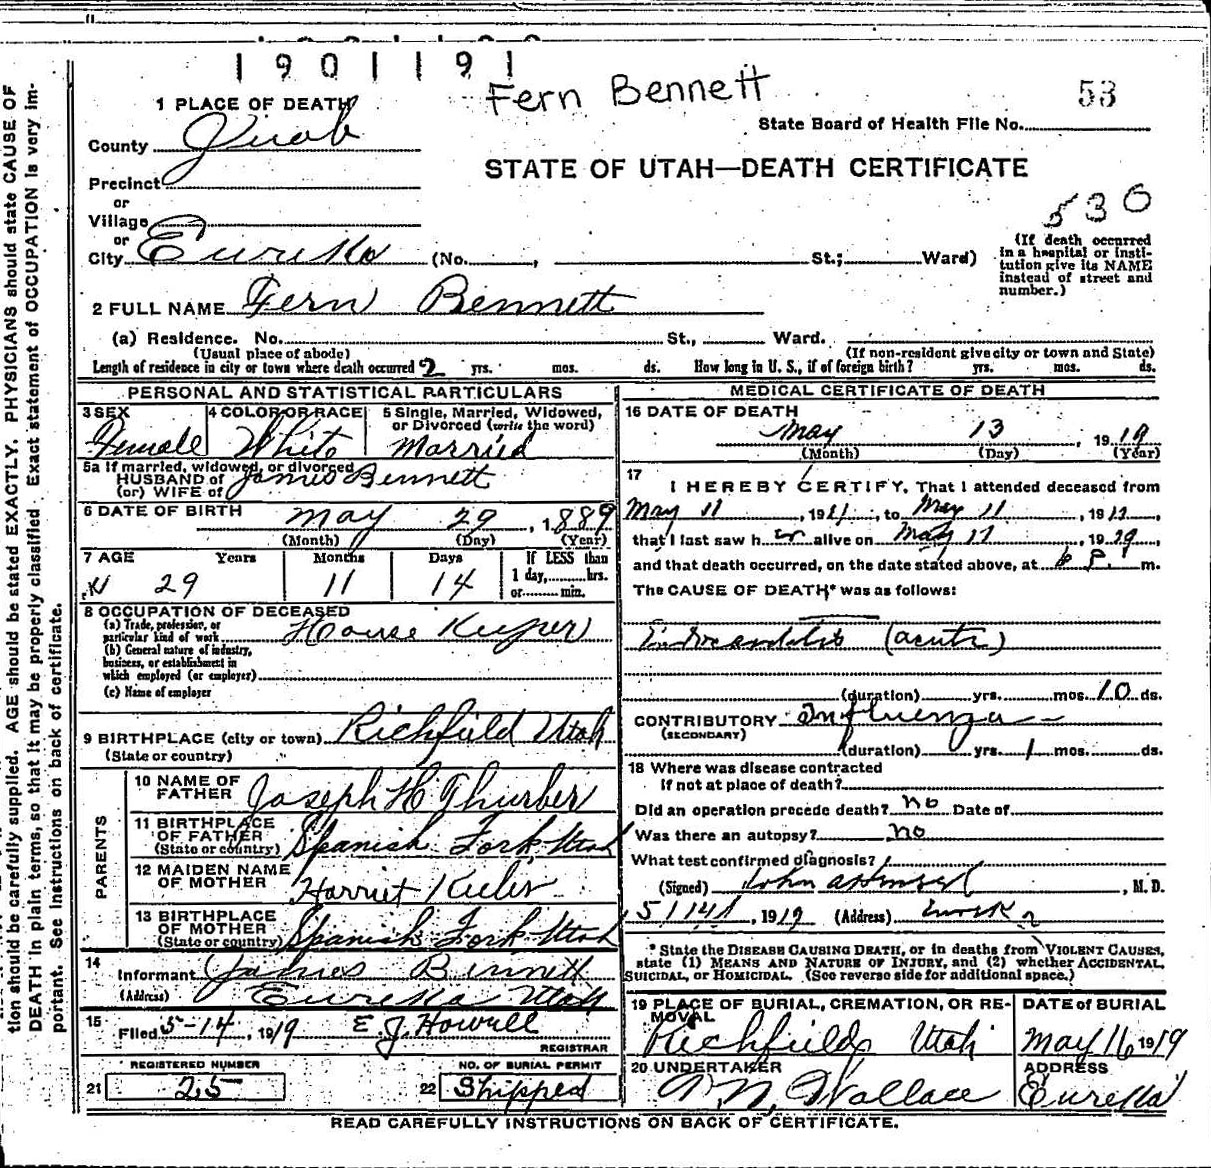 1901191
Fern Bennett
53
1 PLACE OF DEATH
State Board of Health File No.
County Juab
STATE OF UTAH—DEATH CERTIFICATE
Precinct
or
Village
530
or
City Eureka (No. , St.; Ward)
(If death occurred
in a hospital or insti-
tution give its NAME
instead of street and
number.)
2 FULL NAME Fern Bennett
(a) Residence. No. St., Ward.
(Usual place of abode) (If non-resident give city or town and State)
Length of residence in city or town where death occurred 2 yrs. mos. ds. How long in U. S., if of foreign birth? yrs. mos. ds.
PERSONAL AND STATISTICAL PARTICULARS
3 SEX
Female
4 COLOR OR RACE
White
5 Single, Married, Widowed,
or Divorced (write the word)
Married
5a If married, widowed, or divorced
HUSBAND of
(or) WIFE of James Bennett
6 DATE OF BIRTH May 29, 1889
(Month) (Day) (Year)
7 AGE Years Months Days If LESS than
29 11 14 1 day, hrs.
or min.
8 OCCUPATION OF DECEASED
(a) Trade, profession, or
particular kind of work House Keeper
(b) General nature of industry,
business, or establishment in
which employed (or employer)
(c) Name of employer
9 BIRTHPLACE (city or town) Richfield Utah
(State or country)
PARENTS
10 NAME OF
FATHER Joseph H Thurber
11 BIRTHPLACE
OF FATHER
(State or country) Spanish Fork Utah
12 MAIDEN NAME
OF MOTHER Harriet
13 BIRTHPLACE
OF MOTHER
(State or country) Spanish Fork Utah
14
Informant James Bennett
(Address) Eureka Utah
15
Filed 5-14, 1919 E J. Howell
REGISTRAR
REGISTERED NUMBER
21 25
NO. OF BURIAL PERMIT
22 Shipped
MEDICAL CERTIFICATE OF DEATH
16 DATE OF DEATH
May 13, 1919
(Month) (Day) (Year)
17
I HEREBY CERTIFY, That I attended deceased from
May 11, 19 , to May 11, 19 ,
that I last saw her alive on May 11, 1919,
and that death occurred, on the date stated above, at 6 P. m.
The CAUSE OF DEATH* was as follows:
Endocarditis (acute)
(duration) yrs. mos. 10 ds.
CONTRIBUTORY Influenza
(SECONDARY)
(duration) yrs. 1 mos. ds.
18 Where was disease contracted
if not at place of death?
Did an operation precede death? no Date of
Was there an autopsy? no
What test confirmed diagnosis?
(Signed) John , M. D.
5/14, 1919 (Address) Eureka
* State the DISEASE CAUSING DEATH, or in deaths from VIOLENT CAUSES,
state (1) MEANS AND NATURE OF INJURY, and (2) whether ACCIDENTAL,
SUICIDAL, or HOMICIDAL. (See reverse side for additional space.)
19 PLACE OF BURIAL, CREMATION, OR RE-
MOVAL
Richfield, Utah
DATE of BURIAL
May 16 1919
20 UNDERTAKER
Wallace
ADDRESS
Eureka
READ CAREFULLY INSTRUCTIONS ON BACK OF CERTIFICATE.
tion should be carefully supplied. AGE should be stated EXACTLY. PHYSICIANS should state CAUSE OF
DEATH in plain terms, so that it may be properly classified. Exact statement of OCCUPATION is very im-
portant. See instructions on back of certificate.